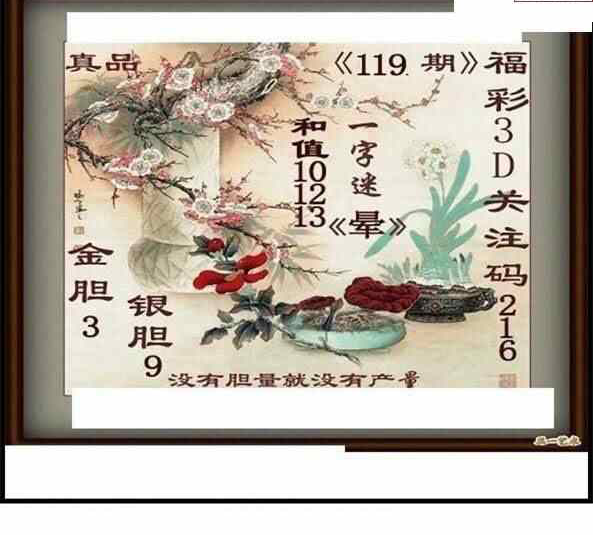 真品
《119.期》
福彩3D关注码216
一字迷《晕》
和值101213
金胆3
银胆9
没有胆量就没有产量